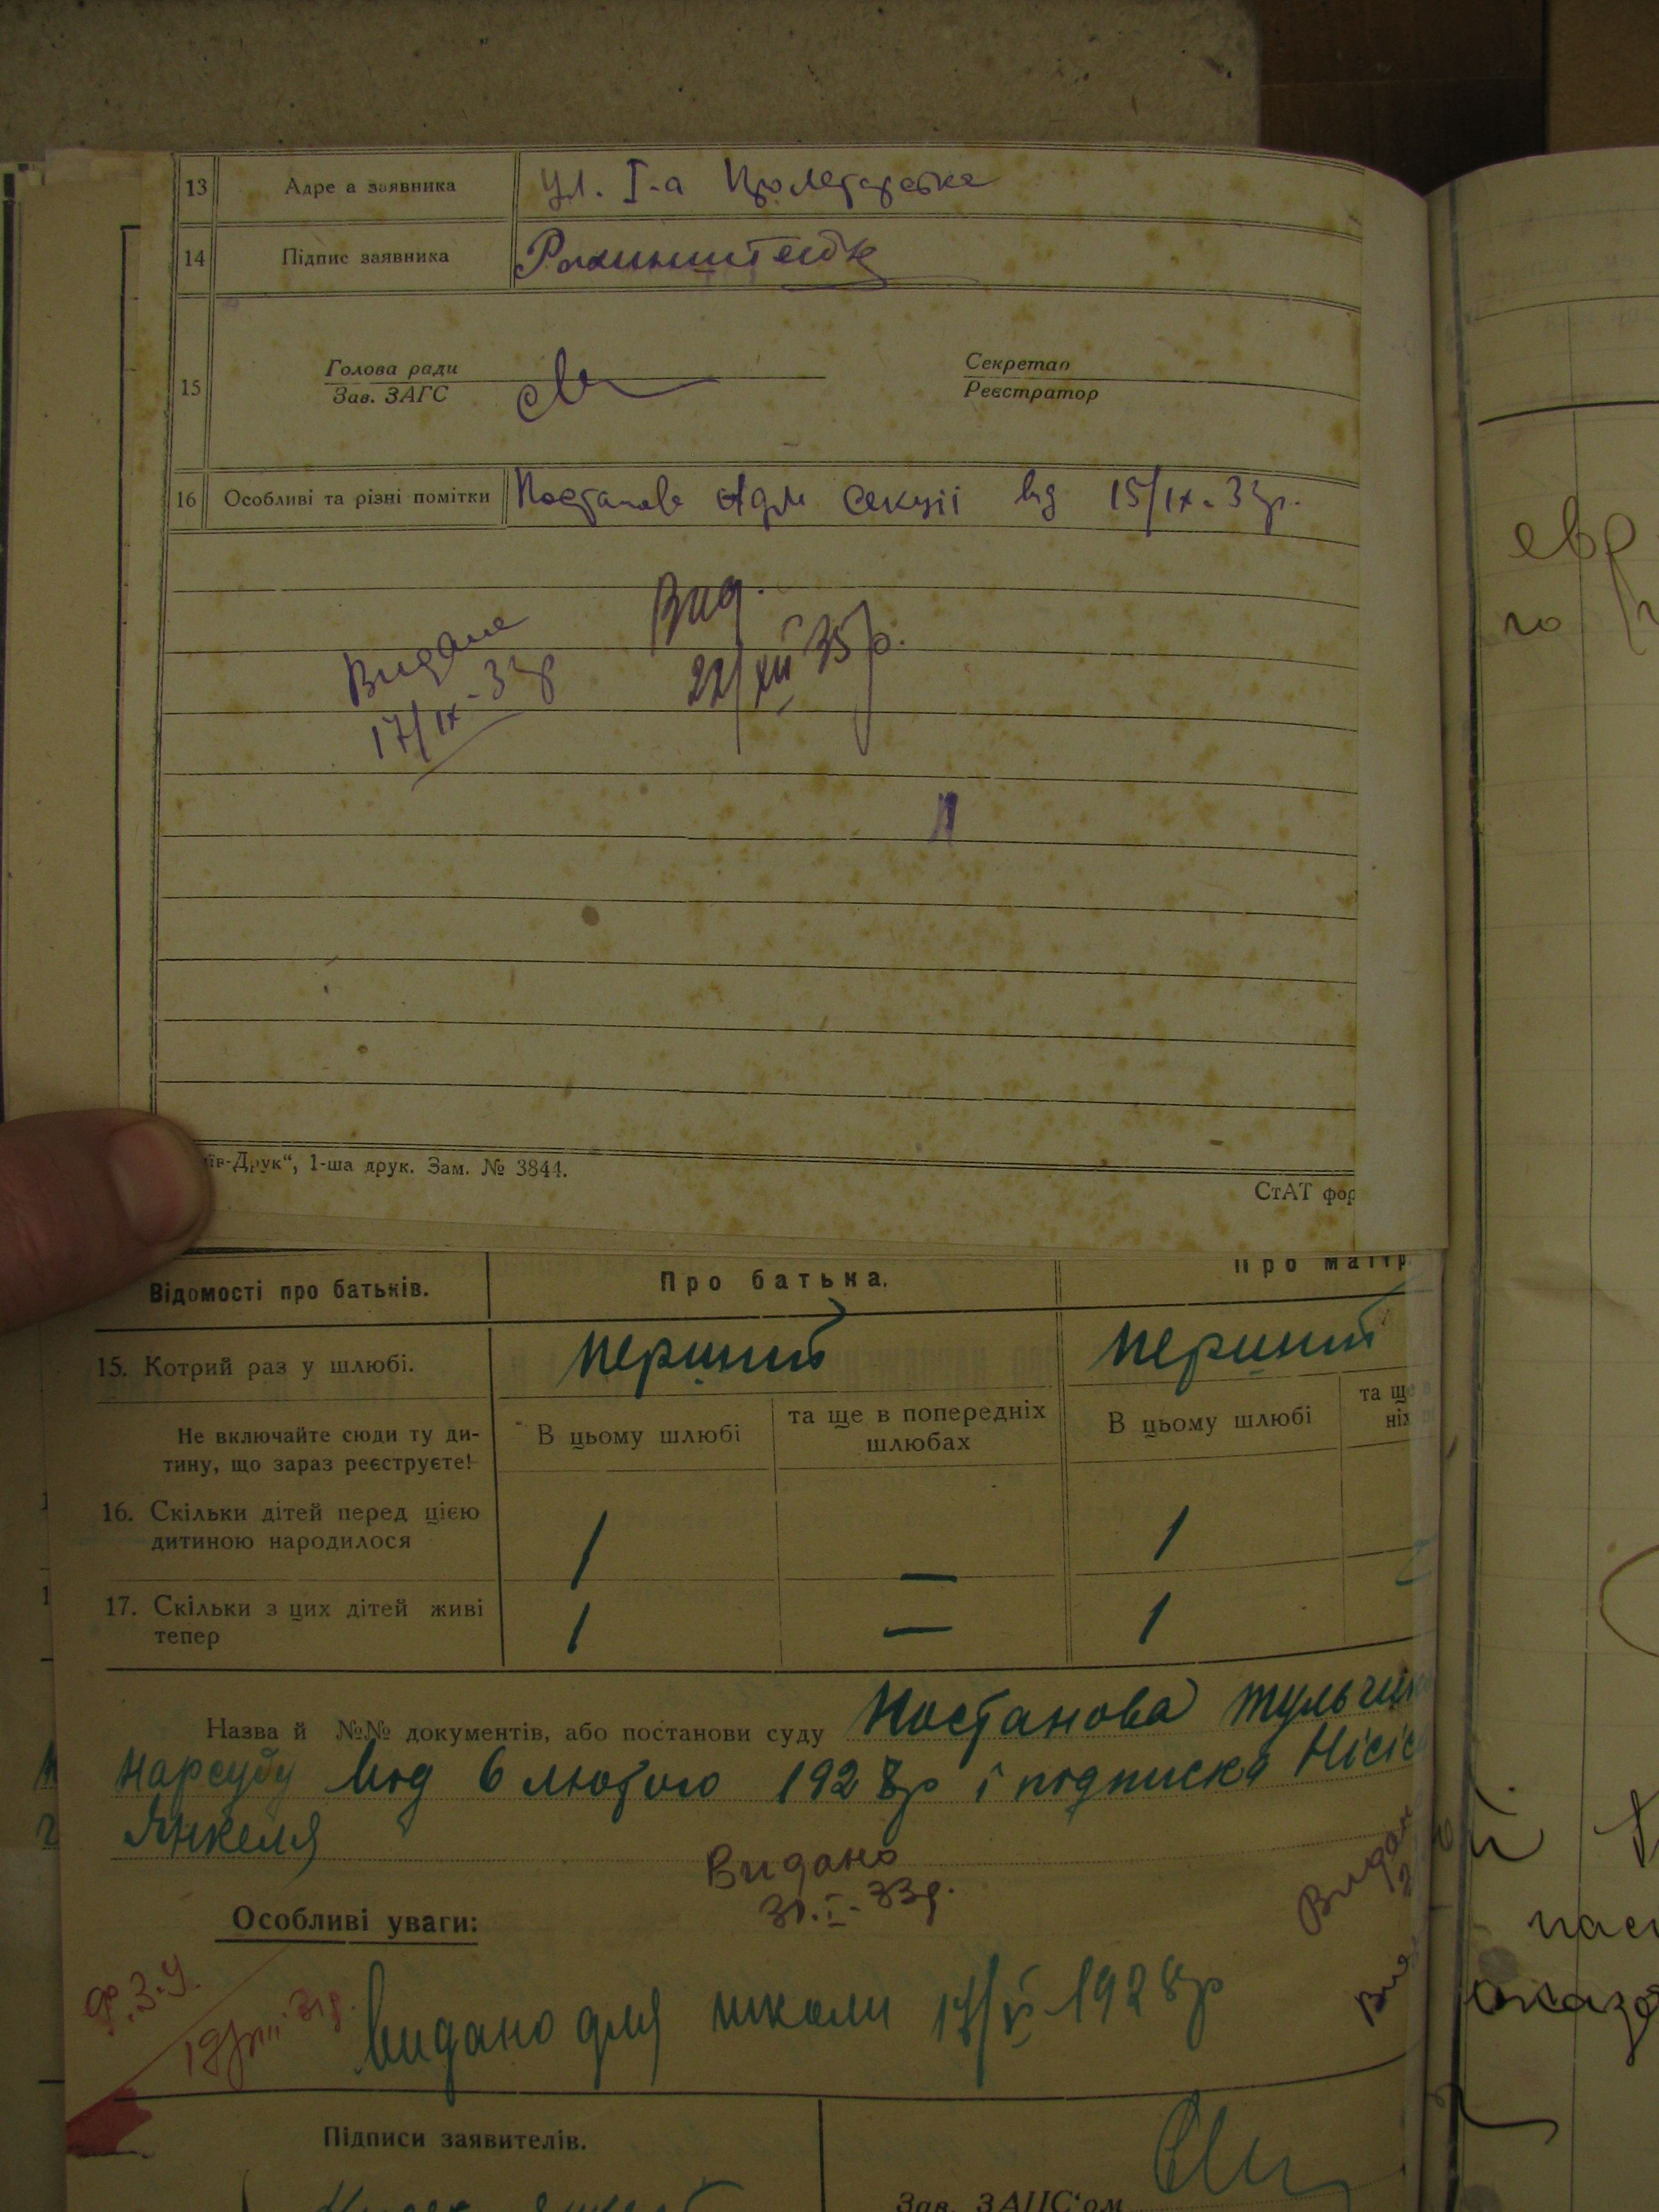 13 Адре а заявника ул. I-а Пролетарська
14 Підпис заявника
15 Голова ради
Зав. ЗАГС
Секретар
Реєстратор
16 Особливі та різні помітки Постанова Адм секції від 15/IX-33р.
Видане
17/IX-33р
Вид.
22/XII 35р.
їв-Друк“, 1-ша друк. Зам. № 3844.
СтАТ фор
Відомості про батьків. Про батька. Про матір
15. Котрий раз у шлюбі. перший перший
Не включайте сюди ту ди-
тину, що зараз реєструєте!
В цьому шлюбі
та ще в попередніх
шлюбах
В цьому шлюбі
та ще
ніх
16. Скільки дітей перед цією
дитиною народилося
1 — 1
17. Скільки з цих дітей живі
тепер
1 — 1
Назва й №№ документів, або постанови суду Постанова Тульчин
нарсуду від 6 лютого 1928р і подписка Нісіс
Янкеля
Видано
31.I-33р.
Видано
Особливі уваги:
Ф.З.У.
видано для школи 17/V 1928р
Підписи заявителів.
Зав. ЗАПС‘ом